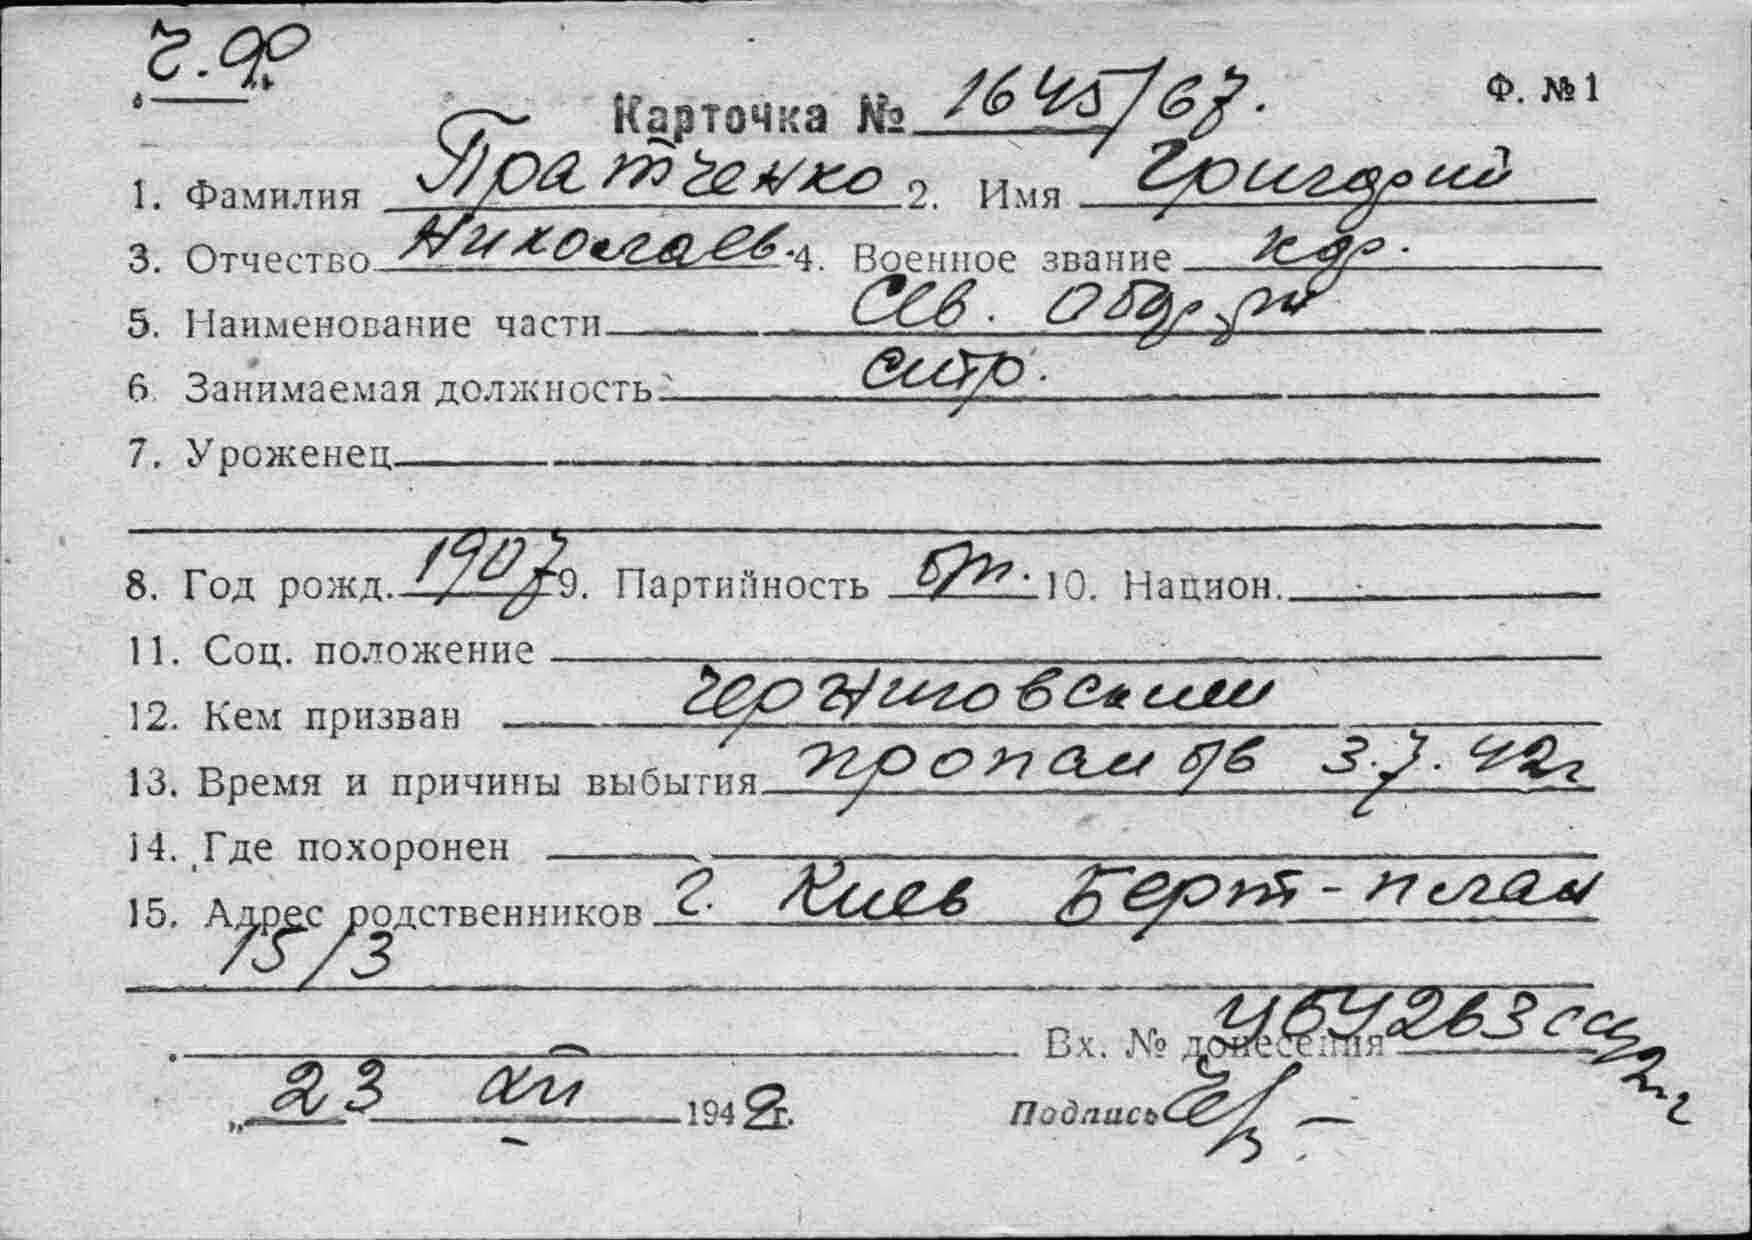 Ч.Ф.
Карточка № 1645/67. Ф. № 1
1. Фамилия Пратченко 2. Имя Григорий
3. Отчество Николаев. 4. Военное звание кр.
5. Наименование части Сев.
6. Занимаемая должность стр.
7. Уроженец
8. Год рожд. 1907 9. Партийность бп. 10. Национ.
11. Соц. положение
12. Кем призван Черниговским
13. Время и причины выбытия пропал б/в 3.7.42г
14. Где похоронен
15. Адрес родственников г. Киев Берт-плац
15/3
Вх. № донесения
„ 23 XII 1942г.
Подпись